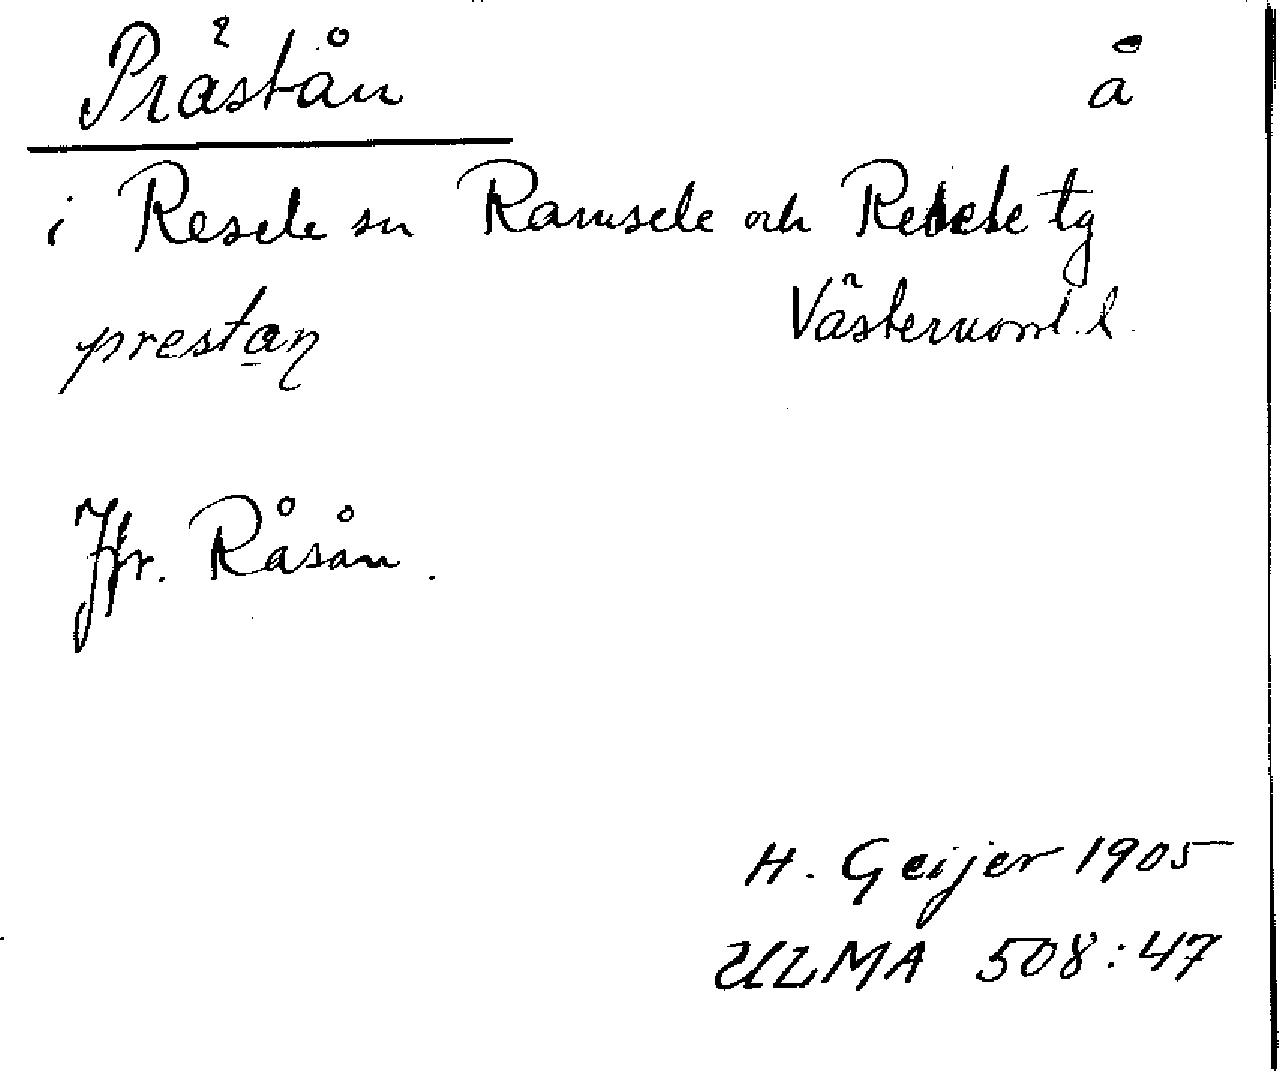 Prästån å
i Resele sn Ramsele och Resele tg
prestan Västernorrl. l.
Jfr. Råsån.
H. Geijer 1905
ULMA 508:47